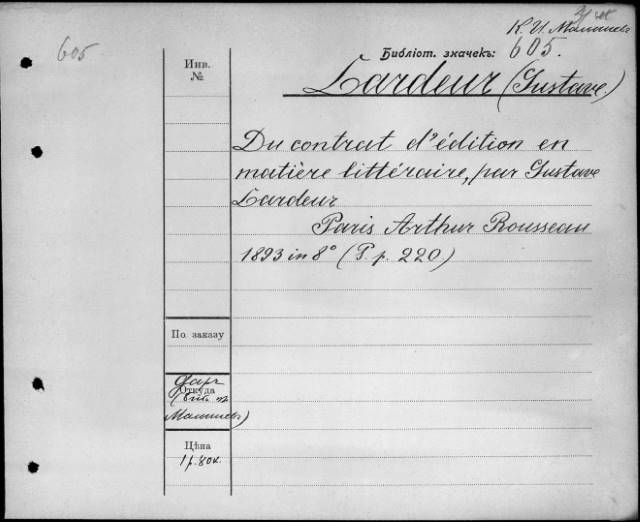 К. И. Малышев
605
Библіот. значекъ: 605.
Инв.
№
Lardeur (Gustave.)
Du contrat d'édition en
matière littéraire, par Gustave
Lardeur
Paris Arthur Rousseau
1893 in 8° (P. p. 220)
По заказу
Даръ
Откуда
Малышева)
Цѣна
1 р. 80 к.